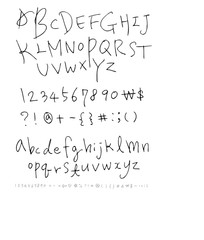 ABCDEFGHIJ
KLMNOPQRST
UVWXYZ
1234567890₩$
?!@+-{}#:;()
abcdefghijklmn
opqrstuvwxyz